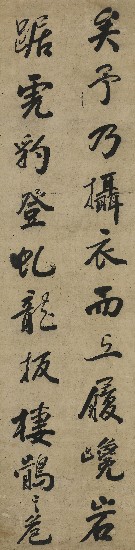 矣予乃攝衣而上履巉岩
踞虎豹登虬龍扳棲鶻之危